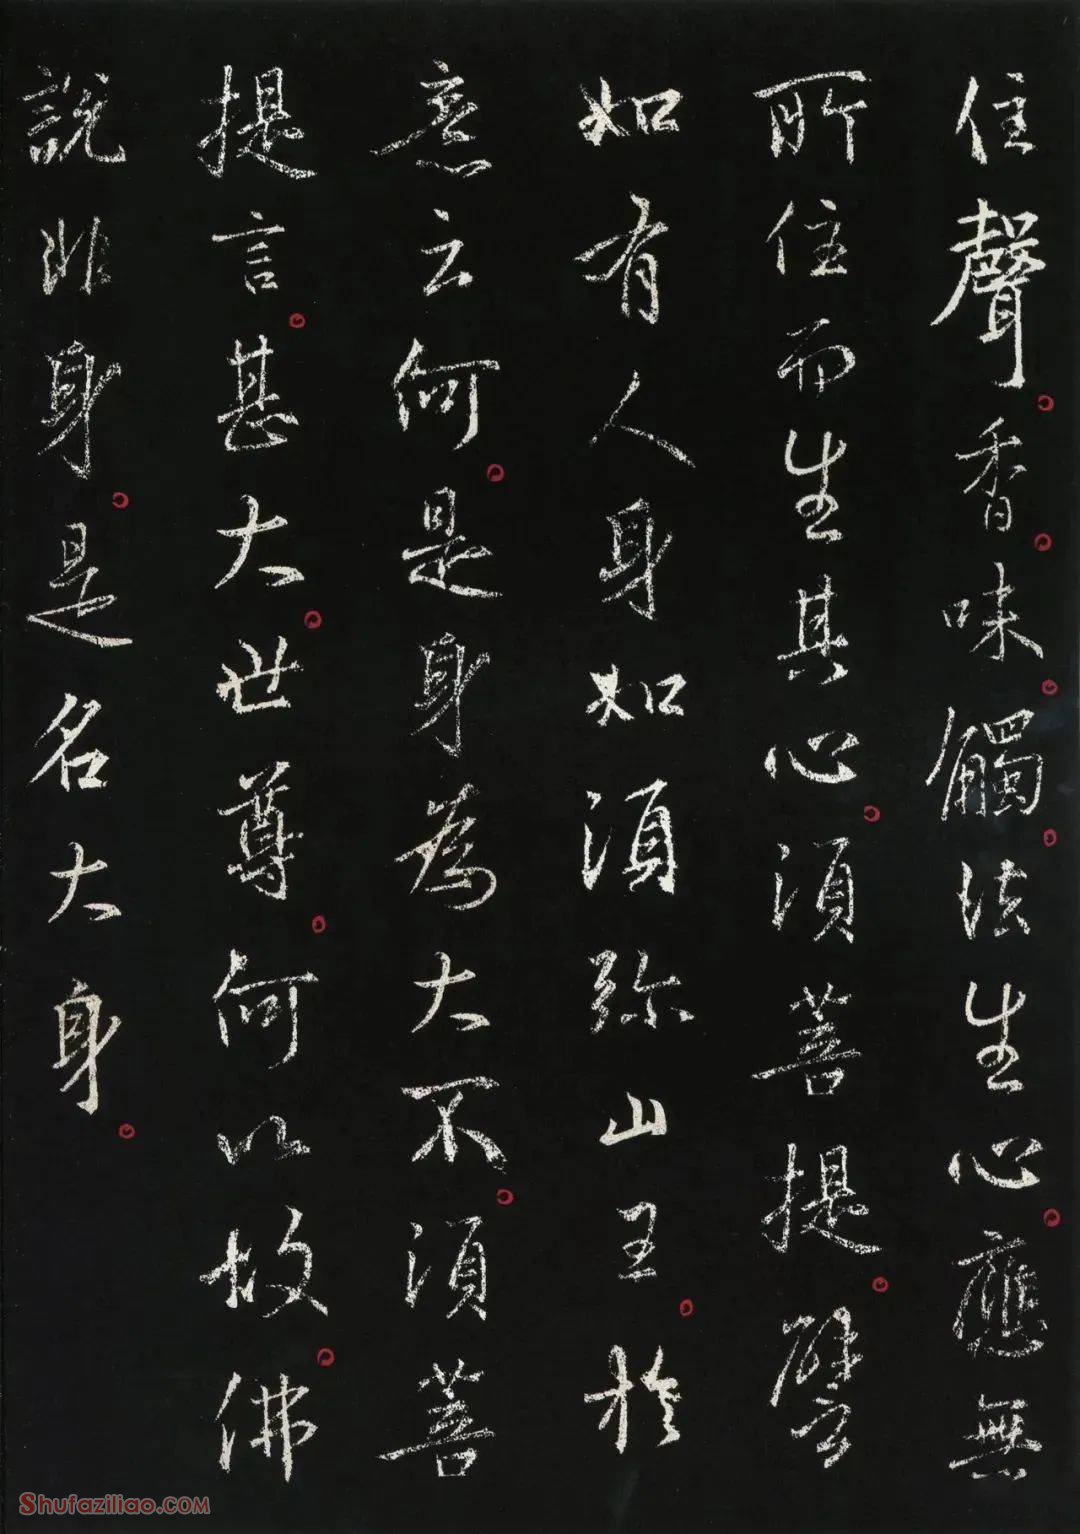 住聲香味觸法生心應無
所住而生其心須菩提譬
如有人身如須弥山王於
意云何是身為大不須菩
提言甚大世尊何以故佛
說非身是名大身
Shufaziliao.COM